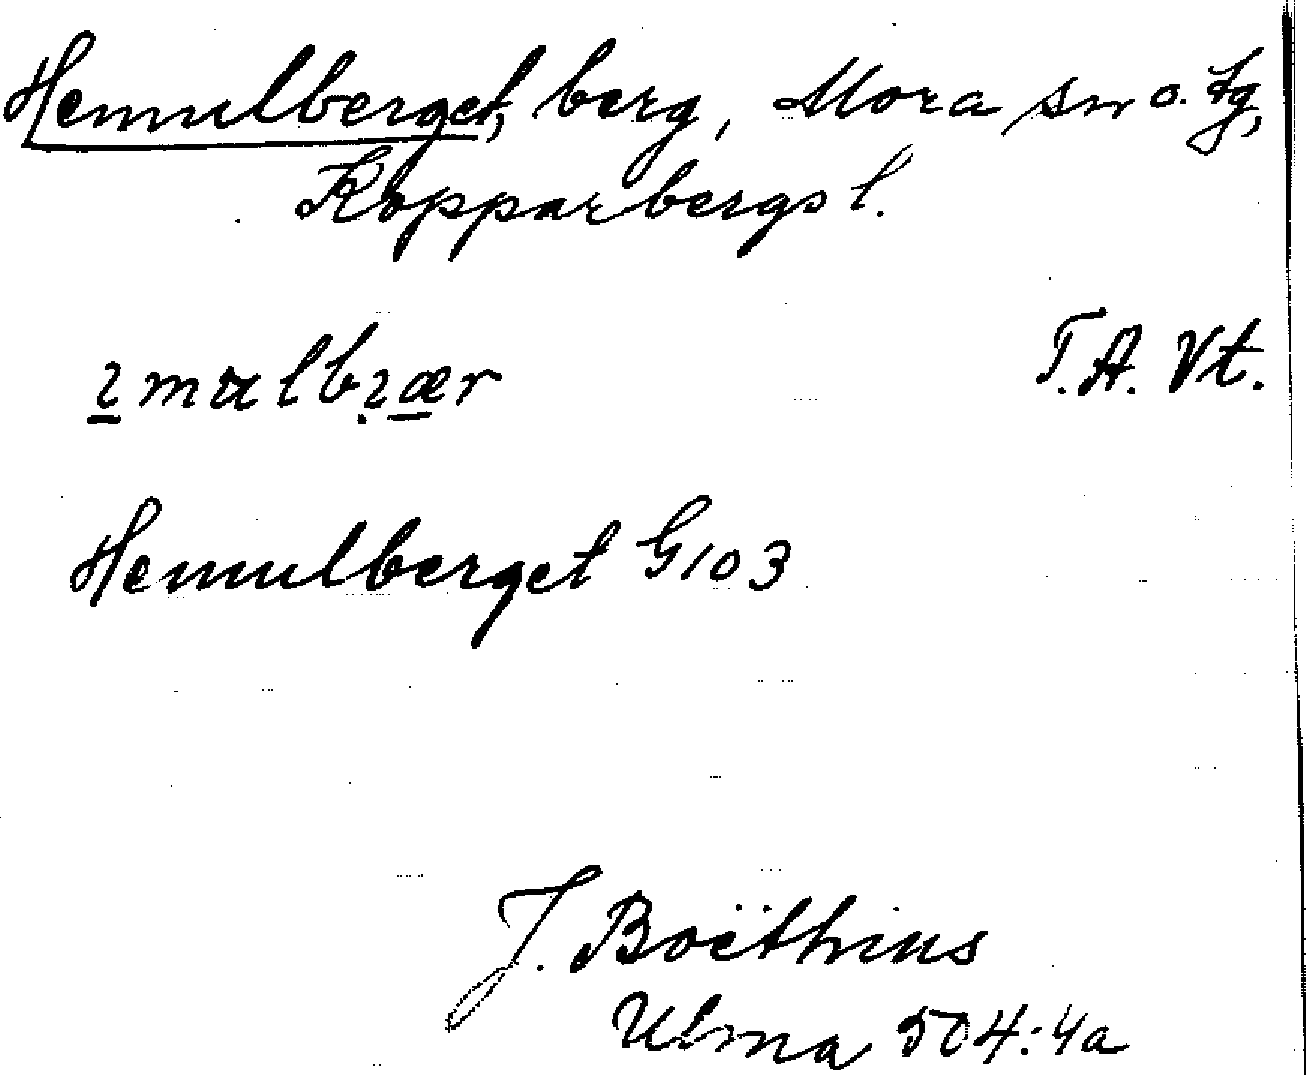 Hemulberget, berg, Mora sn o. tg,
Kopparbergs l.
T. A. Vt.
Hemulberget G103
J. Boëthius
Ulma 504:4a